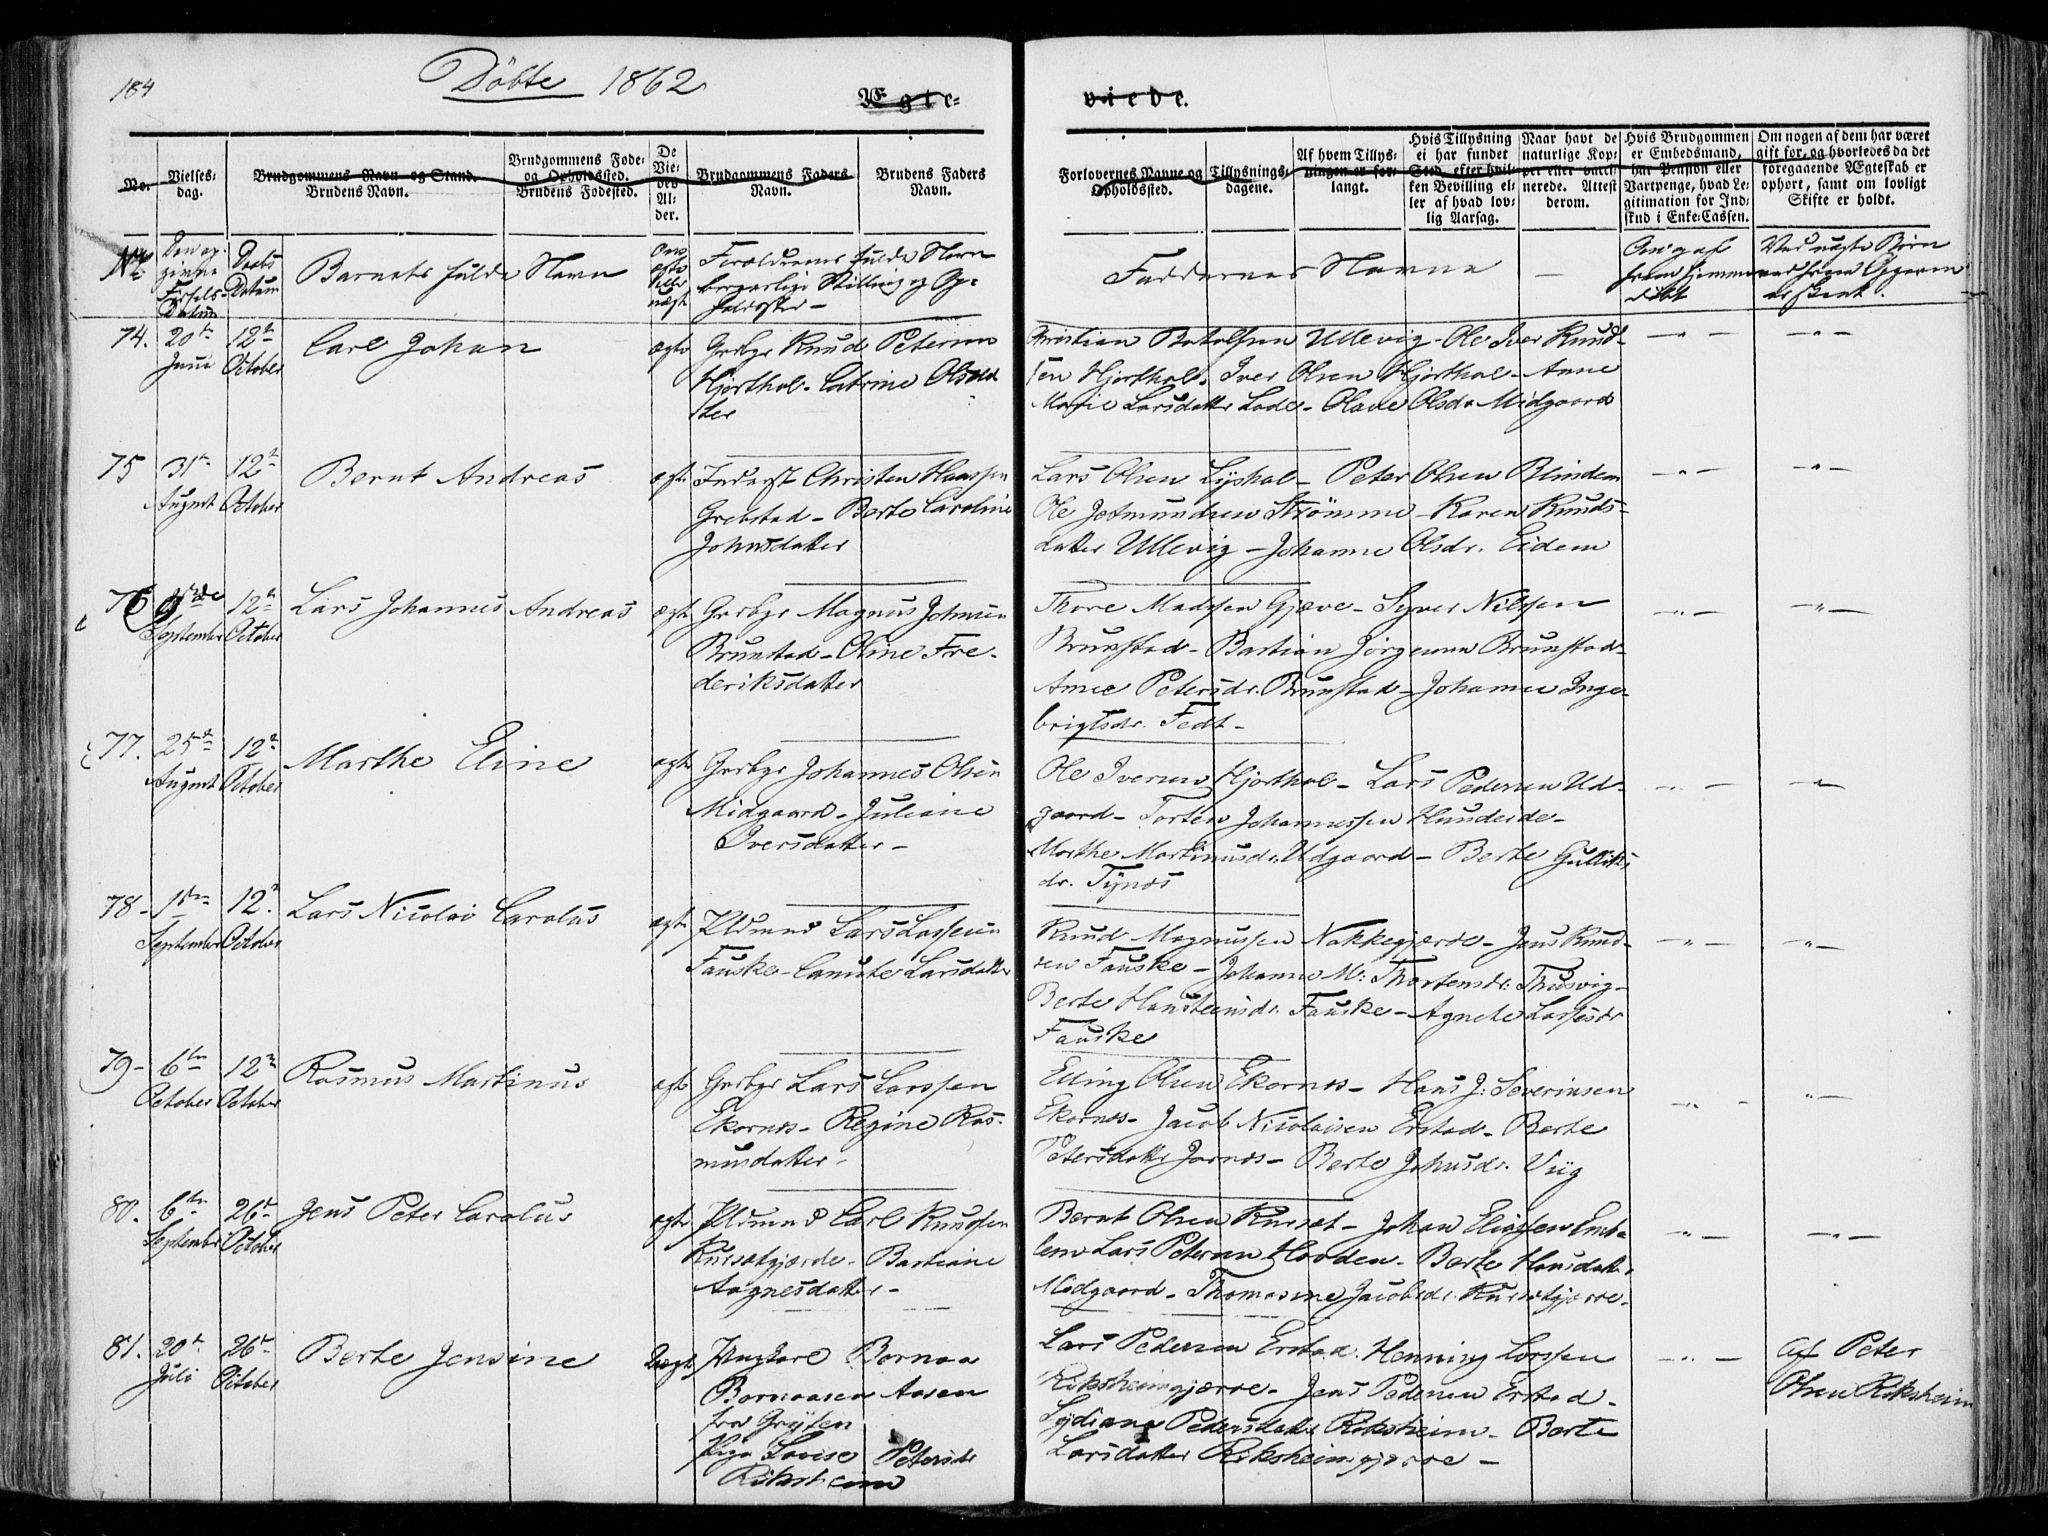 184
Döbte 1862
Ægte-
viede.
No.
Vielses-
dag.
Brudgommens Navn og Stand.
Brudens Navn.
Brudgommens Føde-
og Opholdssted.
Brudens Fødested.
De
Vie-
des
Al-
der.
Brudgommens Faders
Navn.
Brudens Faders
Navn.
Forlovernes Navne og
Opholdssted.
Tillysnings-
dagene.
Af hvem Tillys-
ningen er for-
langt.
Hvis Tillysning
ei har fundet
Sted, efter hvil-
ken Bevilling el-
ler af hvad lov-
lig Aarsag.
Naar havt de
naturlige Kop-
per eller vacci-
nerede. Attest
derom.
Hvis Brudgommen
er Embedsmand,
har Pension eller
Vartpenge, hvad Le-
gitimation for Ind-
skud i Enke-Cassen.
Om nogen af dem har været
gift før, og hvorledes da det
foregaaende Ægteskab er
ophørt, samt om lovligt
Skifte er holdt.
No
Fødsels-
Datum
Daabs
Datum
Barnets fulde Navn
Om
ægte
eller
uægte
Forældrenes fulde Navn
borgerlige Stilling og Op-
holdssted -
Faddernes Navne
hjemme
döbt
Ved uægte Børn
74.
20de
Juni
12te
October
Carl Johan
ægte
Grdbgr Knud Petersen
Hjorthol. Catrine Olsdat
ter
Christian Botolfsen Ullevig - Ole Iver Knud-
sen Hjorthol. Iver Olsen Hjorthol - Anne
Marie Larsdatter Lade - Olave Olsdr Midgaard
75
31te
August
12te
October
Bernt Andreas
ægte
Inderst Christen Hanssen
Grebstad - Berte Caroline
Johnsdatter
Lars Olsen Lyshol - Peter Olsen Blindem
Ole Jetmundsen Strømme - Karen Knuds-
datter Ullevig - Johanne Olsdr. Eidem
76
September
12te
October
Lars Johannes Andreas
ægte
Grdbgr Magnus Johnsen
Brunstad - Oline Fre-
deriksdatter
Thore Madssen Gjæve - Syver Nilssen
Brunstad - Bastian Jørgensen Brunstad-
Anne Petersdr. Brunstad - Johanne Inge-
brigtsdr. Fedt -
77.
25de
August
12te
October
Marthe Eline
ægte
Grdbgr Johannes Olsen
Midgaard - Juliane
Iversdatter -
Ole Iversen Hjorthol - Lars Pedersen Ud-
gaard - Torsten Johannessen Hunderde -
Marthe Martinusdr. Udgaard - Berte Gulliks
dr. Tynæs
78 -
1ste
September
12te
October
Lars Nicolai Carolus
ægte
Pldmnd Lars Larssen
Fauske - Canute Larsdatter
Knud Magnussen Nakkegjærde - Jens Knud-
sen Fauske - Johanne M: Thorstensdr. Thusvig-
Berte Hansteensdr. Fauske - Agnete Larssdr
Fauske
79 -
6te
October
12te
October
Rasmus Martinus
ægte
Grdbgr Lars Larssen
Ekornæs - Regine Ras-
musdatter -
Elling Olsen Ekornæs - Hans J: Severinsen
Ekornæs - Jacob Nicolaisen Erstad - Berte
Petersdatter Jarnæs - Berte Johnsdr. Viig
80.
6te
September
26de
October
Jens Peter Carolus
ægte
Pldmnd Carl Knudsen
Kursætgjærde - Bastiane
Aagnesdatter -
Bernt Olsen Kursæt - Johan Eliassen Emb-
lem Lars Petersen Hovden - Berte Hansdatter
Midgaard - Thomasine Jacobsdr Kursætgjærde -
81.
20de
Juli
26de
October
Berte Jensine
Uægte
Ungkarl Bornaa
Bornaasen Aasen
fra Grytten
Pige Lovise Petersdr
Riksheim
Lars Pedersen Erstad. Henning Larssen
Riksheimgjærde - Jens Pedersen Erstad -
Lydiana Pedersdatter Riksheim - Berte
Larsdatter Riksheimgjærde -
Af Peter
Olsen Riksheim